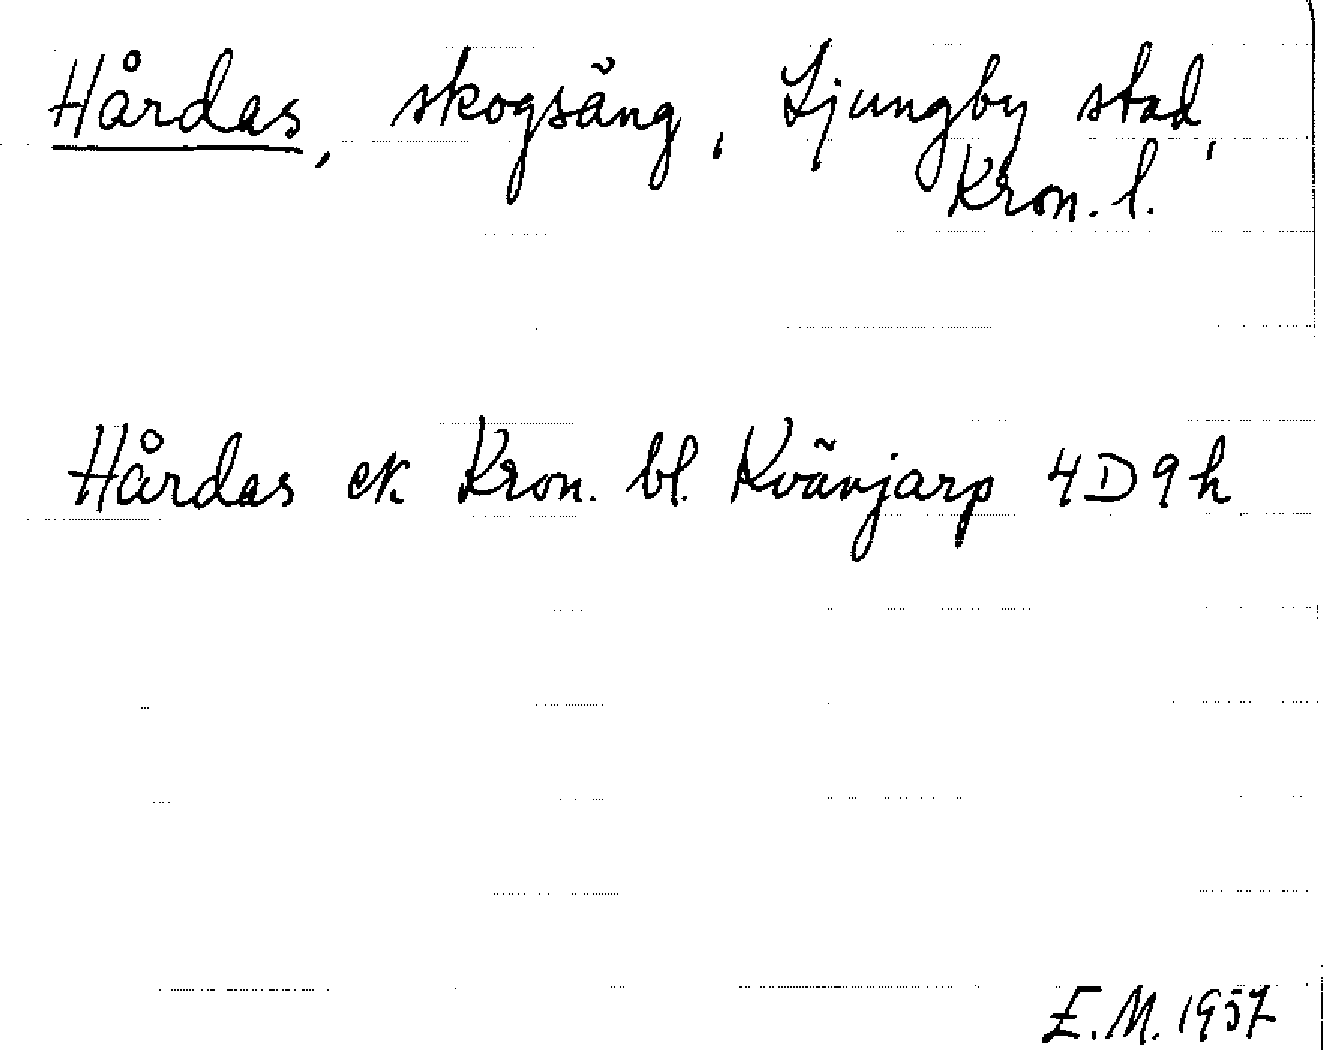 Hårdas, skogsäng, Ljungby stad,
Kron. l.
Hårdas ek Kron. bl. Kvänjarp 4D9h
E.M. 1957